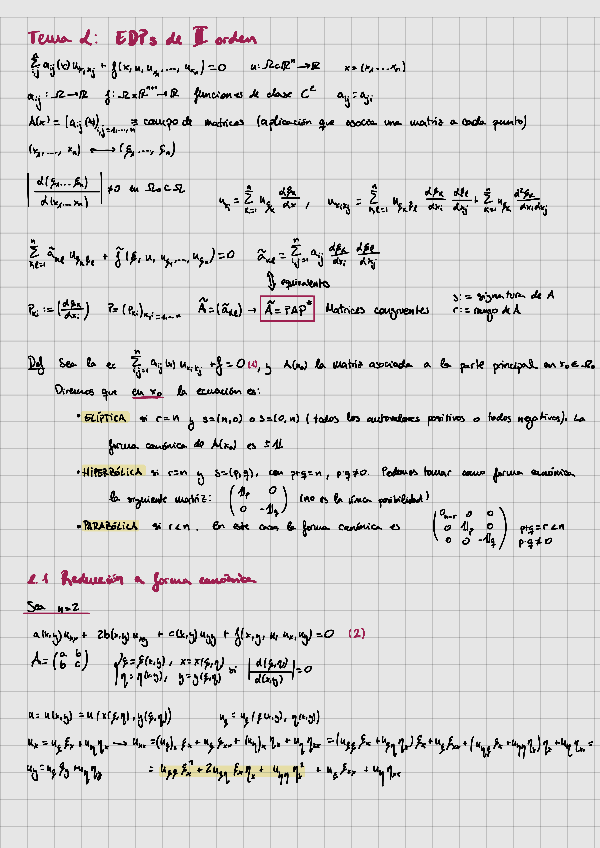 Tema 2: EDPs de II orden
∑_{i,j}^n a_{ij}(x) u_{x_i x_j} + f(x, u, u_{x_1}, ..., u_{x_n}) = 0   u: Ω⊂ℝⁿ → ℝ   x = (x_1 ... x_n)
a_{ij}: Ω → ℝ   f: Ω×ℝ^{n+1} → ℝ   funciones de clase C²   a_{ij} = a_{ji}
A(x) = (a_{ij}(x))_{i,j=1,...,n} ≡ campo de matrices (aplicación que asocia una matriz a cada punto)
(x_1, ..., x_n) ⟷ (ξ_1, ..., ξ_n)
|d(ξ_1 ... ξ_n) / d(x_1 ... x_n)| ≠ 0 en Ω_0 ⊂ Ω   u_{x_i} = ∑_{k=1}^n u_{ξ_k} dξ_k/dx_i , u_{x_i x_j} = ∑_{k,l=1}^n u_{ξ_k ξ_l} dξ_k/dx_i dξ_l/dx_j + ∑_{k=1}^n u_{ξ_k} d²ξ_k/dx_i dx_j
∑_{k,l=1}^n ã_{kl} u_{ξ_k ξ_l} + f̃(ξ, u, u_{ξ_1}, ..., u_{ξ_n}) = 0   ã_{kl} = ∑_{i,j=1}^n a_{ij} dξ_k/dx_i dξ_l/dx_j
⇕ equivalente
P_{ki} := (dξ_k/dx_i)   P = (P_{ki})_{k,i=1,...,n}   Ã = (ã_{kl}) → Ã = PAP*   Matrices congruentes   s := signatura de A
r := rango de A
Def Sea la ec ∑_{i,j=1}^n a_{ij}(x) u_{x_i x_j} + f = 0 (1), y A(x_0) la matriz asociada a la parte principal en x_0 ∈ Ω.
Diremos que en x_0 la ecuación es:
• ELÍPTICA si r=n y s=(n,0) o s=(0,n) (todos los autovalores positivos o todos negativos). La
forma canónica de A(x_0) es ±𝟙
• HIPERBÓLICA si r=n y s=(p,q), con p+q=n, p·q≠0. Podemos tomar como forma canónica
la siguiente matriz: (𝟙_p 0 ; 0 -𝟙_q) (no es la única posibilidad)
• PARABÓLICA si r<n. En este caso la forma canónica es (0_{n-r} 0 0 ; 0 𝟙_p 0 ; 0 0 -𝟙_q) p+q=r<n
p·q≠0
2.1 Reducción a forma canónica
Sea n=2
a(x,y)u_{xx} + 2b(x,y)u_{xy} + c(x,y)u_{yy} + f(x,y,u,u_x,u_y) = 0 (2)
A = (a b ; b c)   {ξ=ξ(x,y), x=x(ξ,η) ; η=η(x,y), y=y(ξ,η)   si |d(ξ,η)/d(x,y)| = 0
u = u(x,y) = u(x(ξ,η), y(ξ,η))   u_ξ = u_ξ(ξ(x,y), η(x,y))
u_x = u_ξ ξ_x + u_η η_x → u_{xx} = (u_ξ)_x ξ_x + u_ξ ξ_{xx} + (u_η)_x η_x + u_η η_{xx} = (u_{ξξ} ξ_x + u_{ξη} η_x) ξ_x + u_ξ ξ_{xx} + (u_{ηξ} ξ_x + u_{ηη} η_x) η_x + u_η η_{xx} =
u_y = u_ξ ξ_y + u_η η_y   = u_{ξξ} ξ_x² + 2u_{ξη} ξ_x η_x + u_{ηη} η_x² + u_ξ ξ_{xx} + u_η η_{xx}